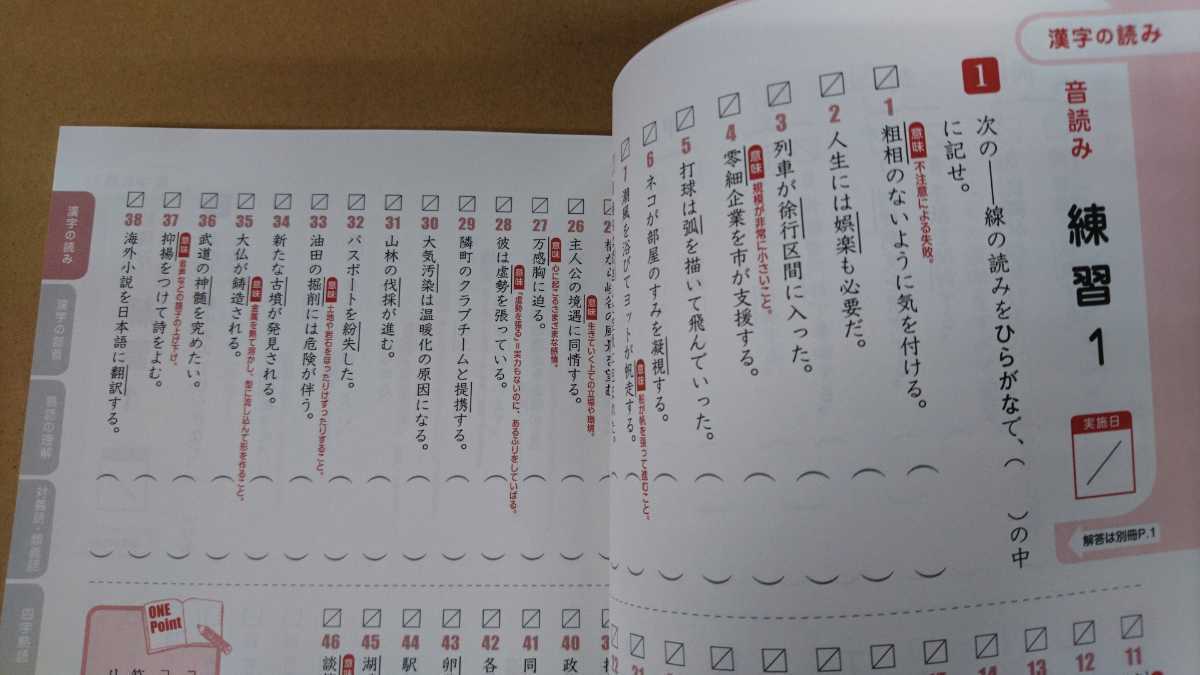 漢字の読み
音読み 練習1
実施日
解答は別冊P.1
1 次の――線の読みをひらがなで、( )の中に記せ。
1 粗相のないように気を付ける。
意味 不注意による失敗。
2 人生には娯楽も必要だ。
3 列車が徐行区間に入った。
4 零細企業を市が支援する。
意味 規模が非常に小さいこと。
5 打球は弧を描いて飛んでいった。
6 ネコが部屋のすみを凝視する。
7 潮風を浴びてヨットが帆走する。
意味 船が帆を張って進むこと。
11
12
13
14
21
22
26 主人公の境遇に同情する。
意味 生きていく上での立場や環境。
27 万感胸に迫る。
意味 心に起こるさまざまな感情。
28 彼は虚勢を張っている。
意味 「虚勢を張る」=実力もないのに、あるふりをしていばる。
29 隣町のクラブチームと提携する。
30 大気汚染は温暖化の原因になる。
31 山林の伐採が進む。
32 パスポートを紛失した。
33 油田の掘削には危険が伴う。
意味 土地や岩石をほったりけずったりすること。
34 新たな古墳が発見される。
35 大仏が鋳造される。
意味 金属を熱で溶かし、型に流し込んで形を作ること。
36 武道の神髄を究めたい。
37 抑揚をつけて詩をよむ。
意味 音声などの調子の上げ下げ。
38 海外小説を日本語に翻訳する。
40 政
41 同
42 各
43 卵
44 駅
45 湖
意味
46 談
ONE Point
漢字の読み
漢字の部首
熟語の理解
対義語・類義語
四字熟語